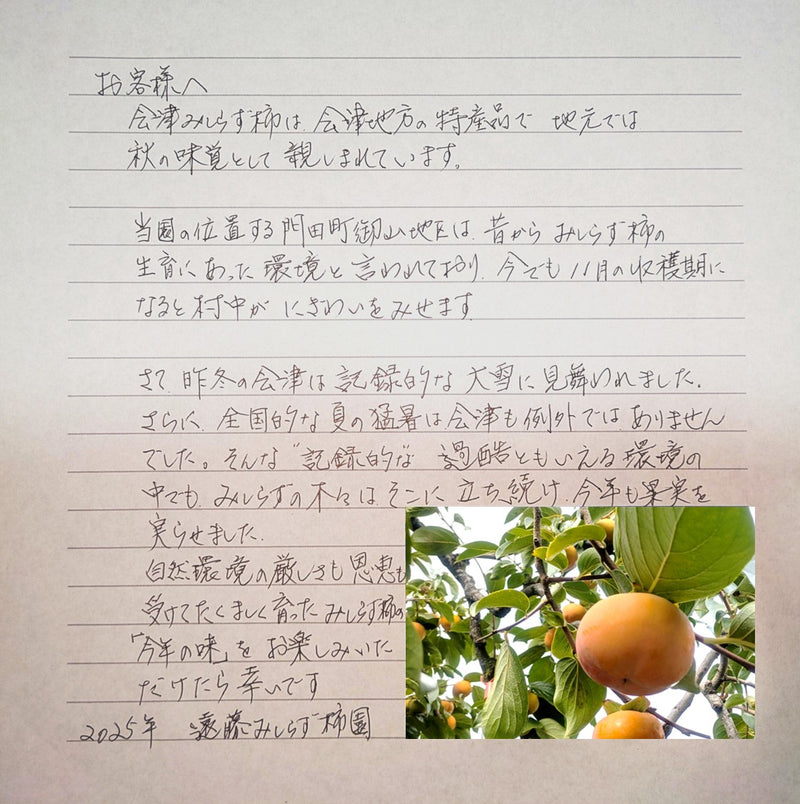 お客様へ
会津みしらず柿は、会津地方の特産品で 地元では
秋の味覚として 親しまれています。
当園の位置する門田町御山地区は、昔から みしらず柿の
生育にあった環境と言われており、今でも11月の収穫期に
なると村中が にぎわいをみせます
さて、昨冬の会津は記録的な大雪に見舞われました。
さらに、全国的な夏の猛暑は会津も例外ではありません
でした。そんな“記録的な” 過酷ともいえる環境の
中でも、みしらずの木々はそこに立ち続け、今年も果実を
実らせました。
自然環境の厳しさも恩恵も
受けてたくましく育ったみしらず柿の
「今年の味」を お楽しみいた
だけたら幸いです
2025年 遠藤みしらず柿園